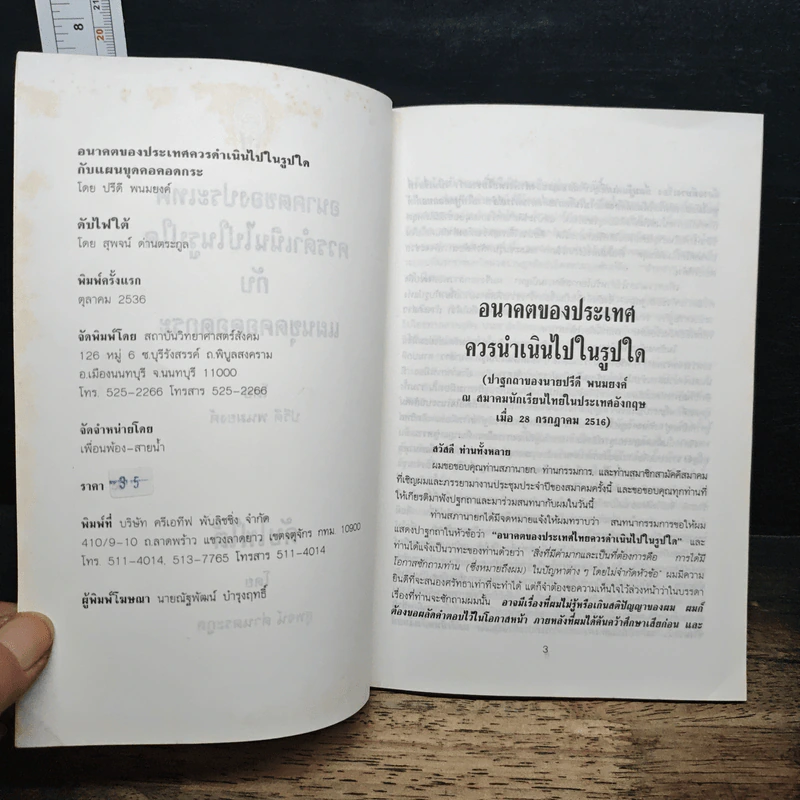 8
21
20
อนาคตของประเทศควรดำเนินไปในรูปใด
กับแผนขุดคอคอดกระ
โดย ปรีดี พนมยงค์
ดับไฟใต้
โดย สุพจน์ ด่านตระกูล
พิมพ์ครั้งแรก
ตุลาคม 2536
จัดพิมพ์โดย สถาบันวิทยาศาสตร์สังคม
126 หมู่ 6 ซ.บุรีรังสรรค์ ถ.พิบูลสงคราม
อ.เมืองนนทบุรี จ.นนทบุรี 11000
โทร. 525-2266 โทรสาร 525-2266
จัดจำหน่ายโดย
เพื่อนพ้อง-สายน้ำ
ราคา 35
พิมพ์ที่ บริษัท ครีเอทีฟ พับลิชชิ่ง จำกัด
410/9-10 ถ.ลาดพร้าว แขวงลาดยาว เขตจตุจักร กทม 10900
โทร. 511-4014, 513-7765 โทรสาร 511-4014
ผู้พิมพ์โฆษณา นายณัฐพัฒน์ บำรุงฤทธิ์
อนาคตของประเทศ
ควรนำเนินไปในรูปใด
(ปาฐกถาของนายปรีดี พนมยงค์
ณ สมาคมนักเรียนไทยในประเทศอังกฤษ
เมื่อ 28 กรกฎาคม 2516)
สวัสดี ท่านทั้งหลาย
ผมขอขอบคุณท่านสภานายก, ท่านกรรมการ, และท่านสมาชิกสามัคคีสมาคม
ที่เชิญผมและภรรยามางานประชุมประจำปีของสมาคมครั้งนี้ และขอขอบคุณทุกท่านที่
ให้เกียรติมาฟังปาฐกถาและมาร่วมสนทนากับผมในวันนี้
ท่านสภานายกได้มีจดหมายแจ้งให้ผมทราบว่า สนทนากรรมการขอให้ผม
แสดงปาฐกถาในหัวข้อว่า "อนาคตของประเทศไทยควรดำเนินไปในรูปใด" และ
ท่านได้แจ้งเป็นวาทะของท่านด้วยว่า "สิ่งที่มีค่ามากและเป็นที่ต้องการคือ การได้มี
โอกาสซักถามท่าน (ซึ่งหมายถึงผม) ในปัญหาต่าง ๆ โดยไม่จำกัดหัวข้อ" ผมมีความ
ยินดีที่จะสนองศรัทธาเท่าที่จะทำได้ แต่ก็จำต้องขอความเห็นใจไว้ล่วงหน้าว่าในบรรดา
เรื่องที่ท่านจะซักถามผมนั้น อาจมีเรื่องที่ผมไม่รู้หรือเกินสติปัญญาของผม ผมก็
ต้องขอผลัดคำตอบไว้ในโอกาสหน้า ภายหลังที่ผมได้ค้นคว้าศึกษาเสียก่อน และ
3